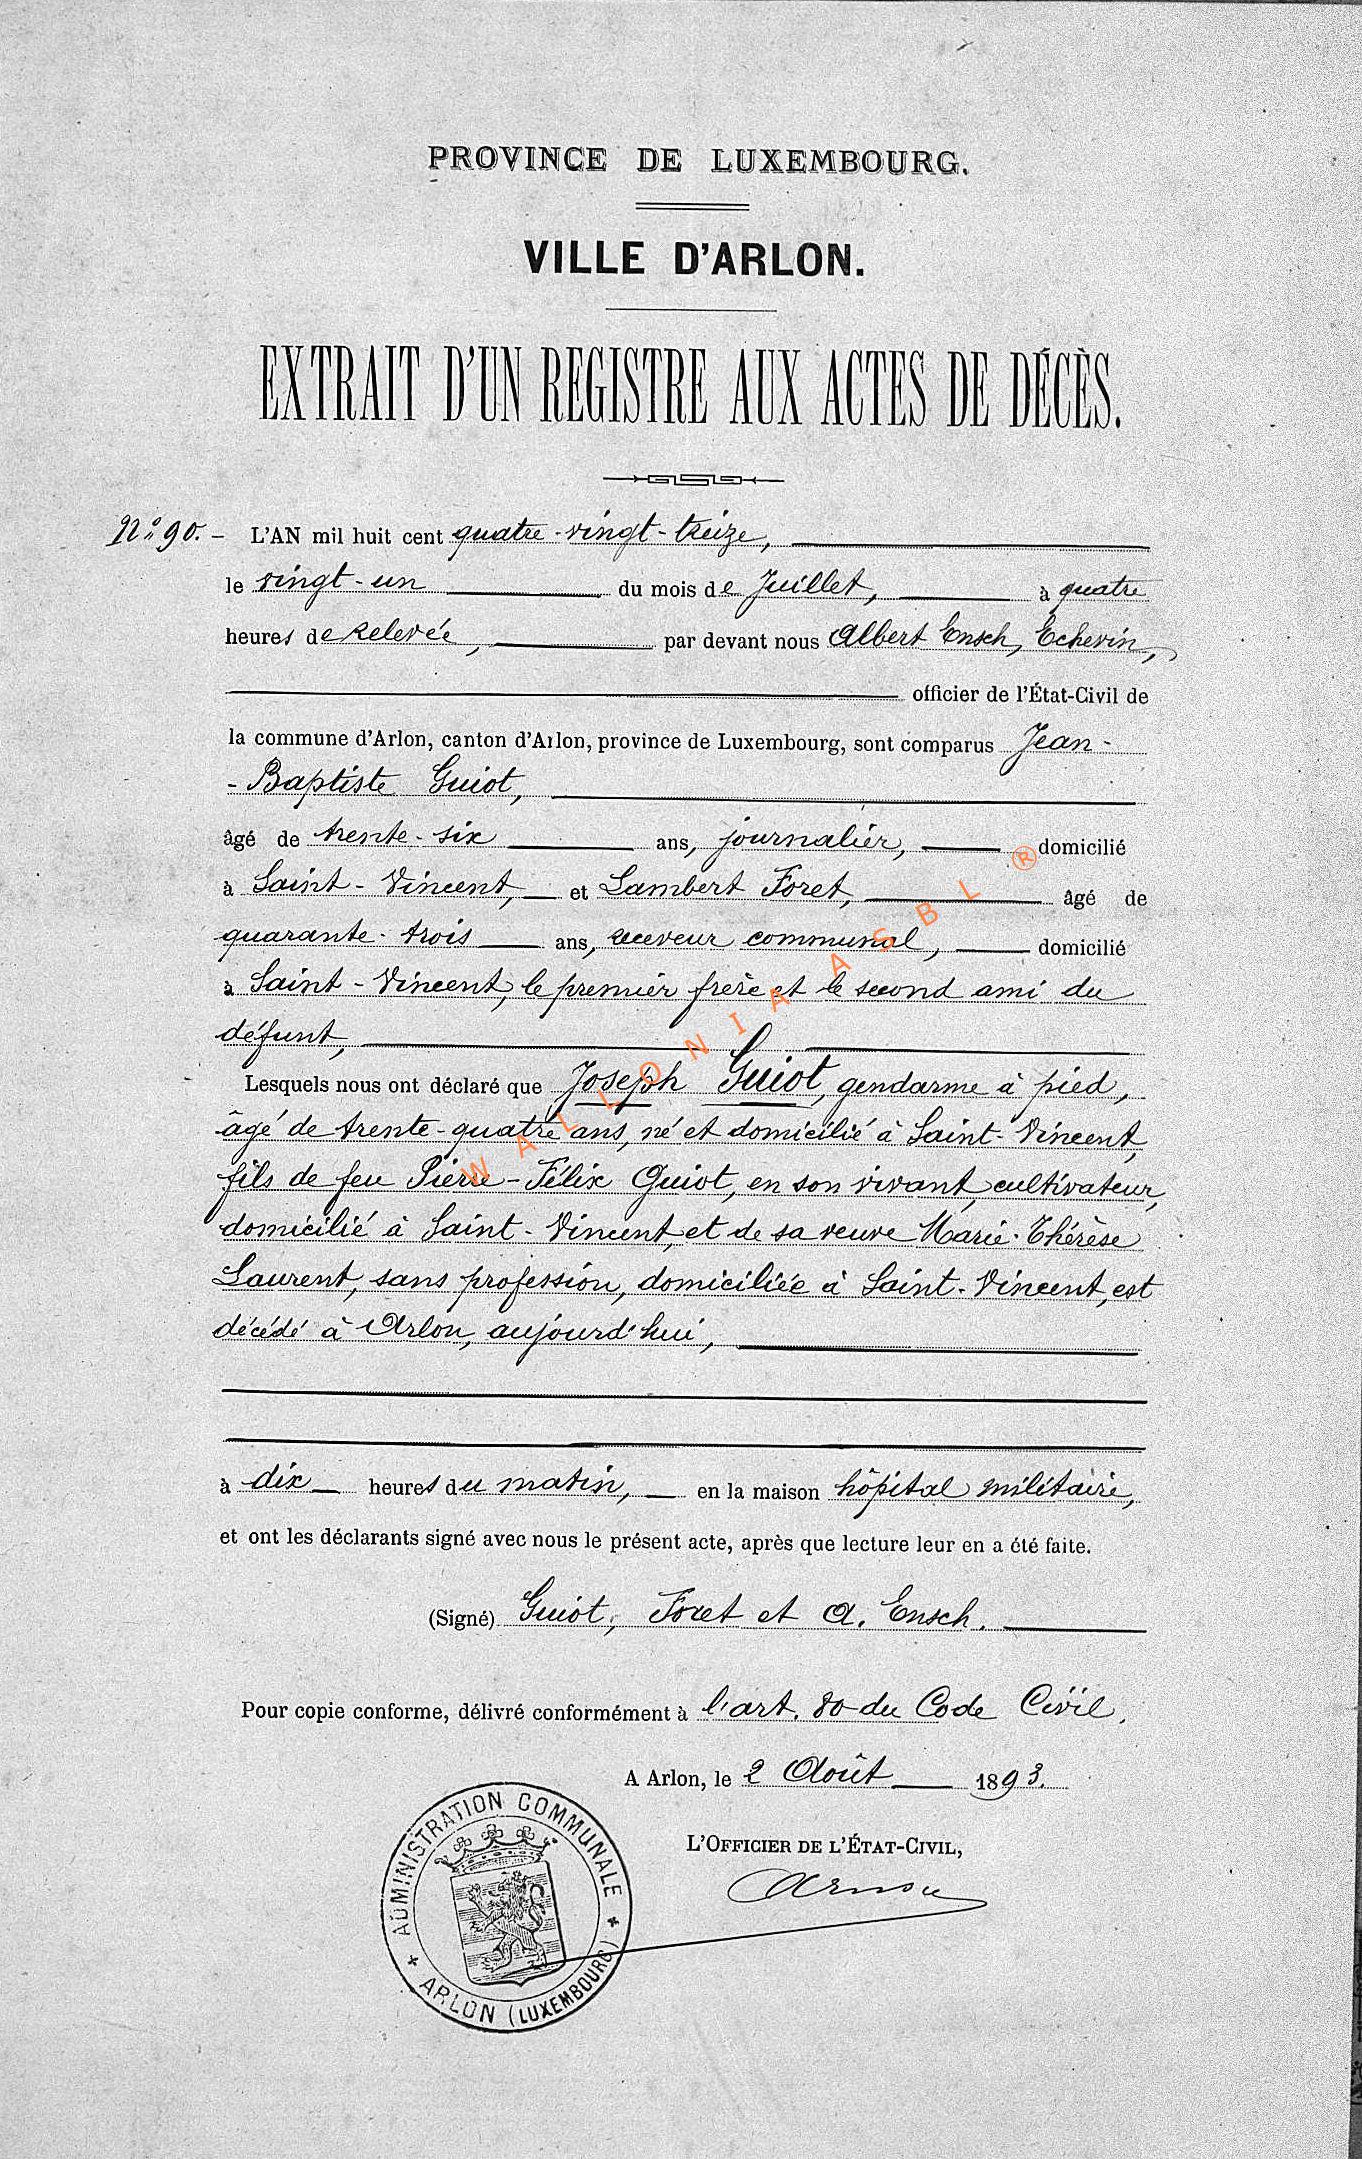 PROVINCE DE LUXEMBOURG.
VILLE D'ARLON.
EXTRAIT D'UN REGISTRE AUX ACTES DE DÉCÈS.
N° 90. – L'AN mil huit cent quatre-vingt-treize,
le vingt-un du mois de Juillet, à quatre
heures de relevée, par devant nous Albert Ensch, Echevin,
officier de l'État-Civil de
la commune d'Arlon, canton d'Arlon, province de Luxembourg, sont comparus Jean-
-Baptiste Guiot,
âgé de trente-six ans, journalier, domicilié
à Saint-Vincent, et Lambert Foret, âgé de
quarante-trois ans, receveur communal, domicilié
à Saint-Vincent, le premier frère et le second ami du
défunt,
Lesquels nous ont déclaré que Joseph Guiot, gendarme à pied,
âgé de trente-quatre ans, né et domicilié à Saint-Vincent,
fils de feu Pierre-Félix Guiot, en son vivant, cultivateur,
domicilié à Saint-Vincent, et de sa veuve Marie-Thérèse
Laurent, sans profession, domiciliée à Saint-Vincent, est
décédé à Arlon, aujourd'hui,
à dix heures du matin, en la maison hôpital militaire,
et ont les déclarants signé avec nous le présent acte, après que lecture leur en a été faite.
(Signé) Guiot, Foret et A. Ensch.
Pour copie conforme, délivré conformément à l'art. 80 du Code Civil.
A Arlon, le 2 Août 1893.
L'OFFICIER DE L'ÉTAT-CIVIL,
ADMINISTRATION COMMUNALE
ARLON (LUXEMBOURG)
WALLONIA ASBL ®